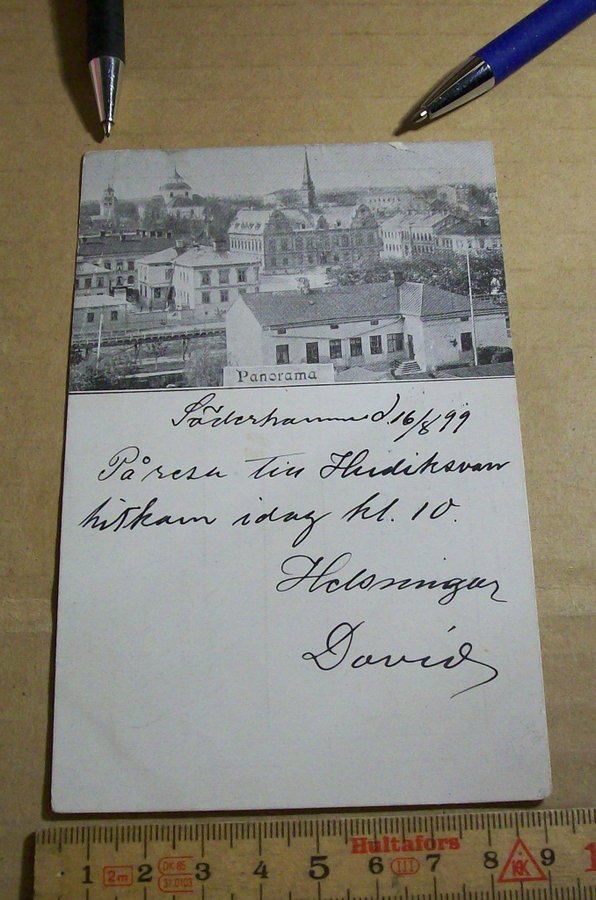 Panorama
Söderhamn d. 16/8 99
På resa till Hudiksvall
hitkom idag kl. 10.
Helsningar
David
Hultafors
1 2m 2 DK 85 3 4 5 6 III 7 8 9 1